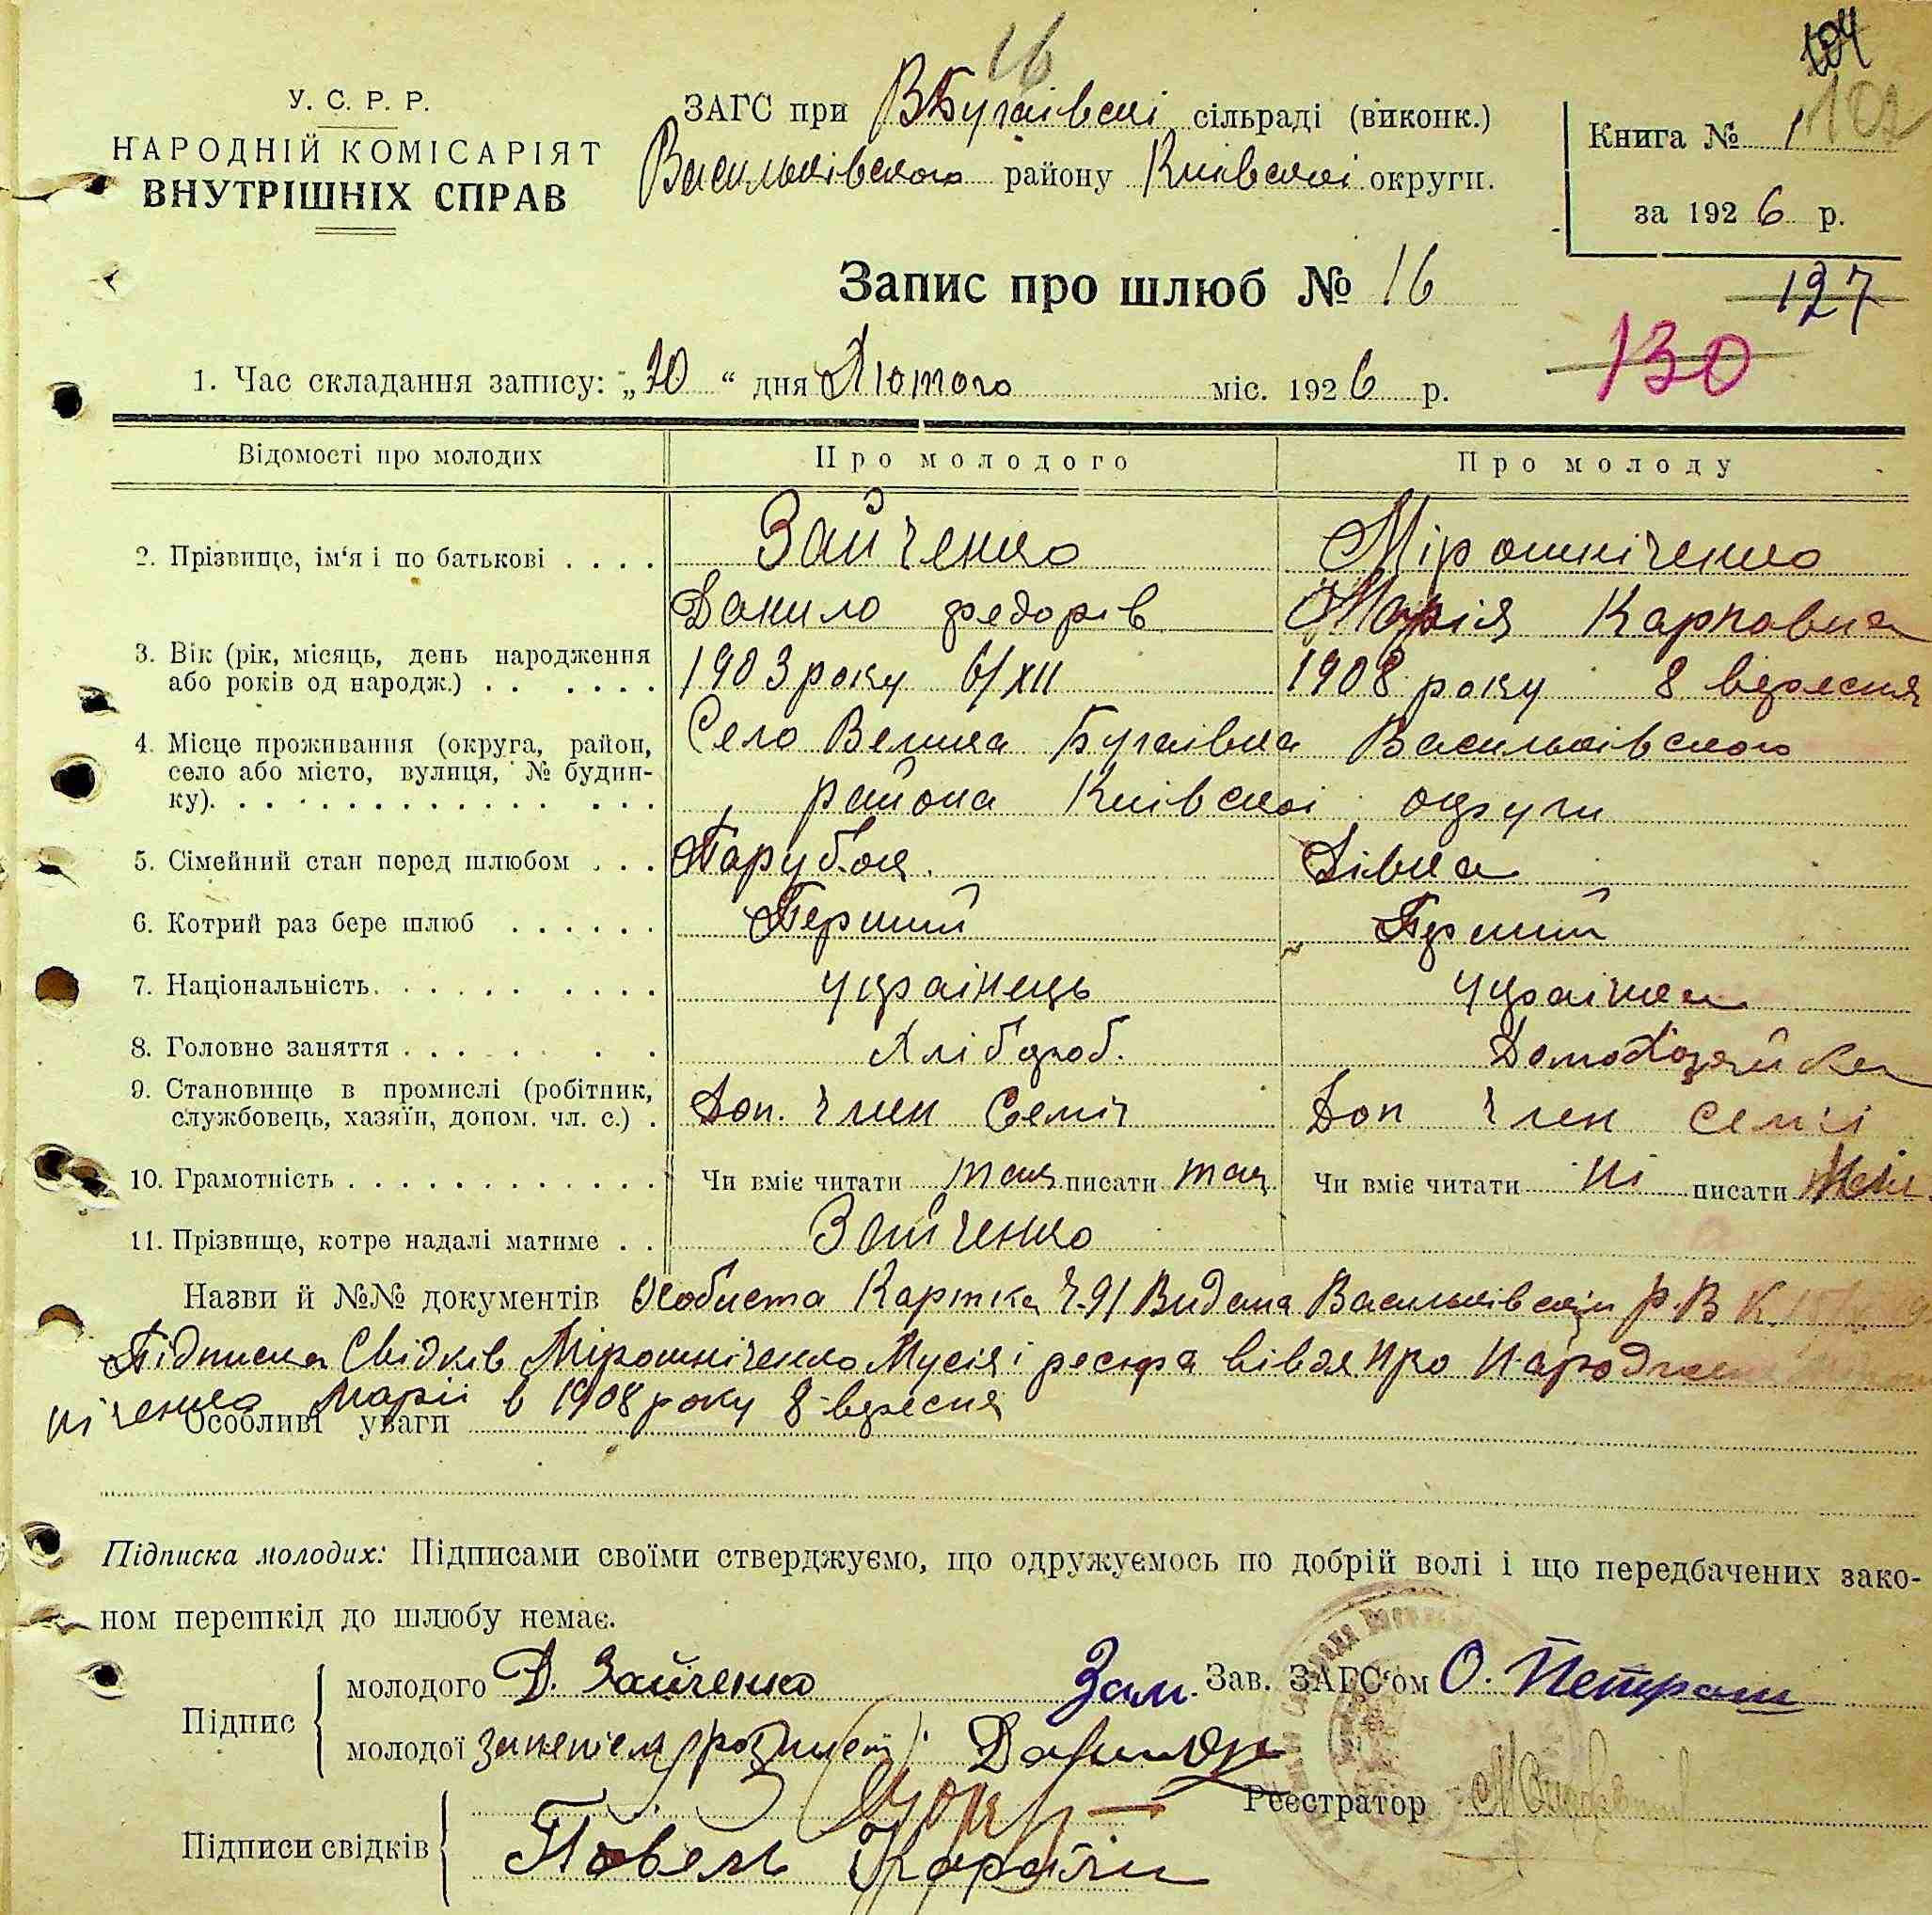 16
104
102
У. С. Р. Р.
НАРОДНІЙ КОМІСАРІЯТ
ВНУТРІШНІХ СПРАВ
ЗАГС при ВБугаівскі сільраді (виконк.)
Васильківского району Київскоі округи.
Книга № 1
за 1926 р.
Запис про шлюб № 16
127
130
1. Час складання запису: „10“ дня Лютого міс. 1926 р.
Відомості про молодих Про молодого Про молоду
2. Прізвище, ім‘я і по батькові . . . . Зайченко Мірошніченко
Данило федорів Марія Карповна
3. Вік (рік, місяць, день народження
або років од народж.) . . . . . . . 1903 року 6/XII 1908 року 8 вересня
4. Місце проживання (округа, район,
село або місто, вулиця, № будин-
ку). . . . . . . . . . . . . . . .
Село Велика Бугаівка Васильківского
района Київскоі округи
5. Сімейний стан перед шлюбом . . . Парубок. Дівка
6. Котрий раз бере шлюб . . . . . . Перший Перший
7. Національність. . . . . . . . . . українець українка
8. Головне заняття . . . . . . . Хлібороб. Домохозяйка
9. Становище в промислі (робітник,
службовець, хазяїн, допом. чл. с.) . Доп. член Семіі Доп член семіі
10. Грамотність . . . . . . . . . . . . . Чи вміє читати так писати так Чи вміє читати ні писати
11. Прізвище, котре надалі матиме . . Зайченко
Назви й №№ документів Особиста Картка Ч. 91 Видана Васильківским Р.В.К.
Підписка Свідків Мірошніченко Мусія і про
ніченко Маріі в 1908 року 8 вересня
Особливі уваги
Підписка молодих: Підписами своїми стверджуємо, що одружуємось по добрій волі і що передбачених зако-
ном перешкід до шлюбу немає.
Підпис
молодого Д. Зайченко
Зам. Зав. ЗАГС‘ом О. Петраш
молодої
Реєстратор
Підписи свідків
Павель